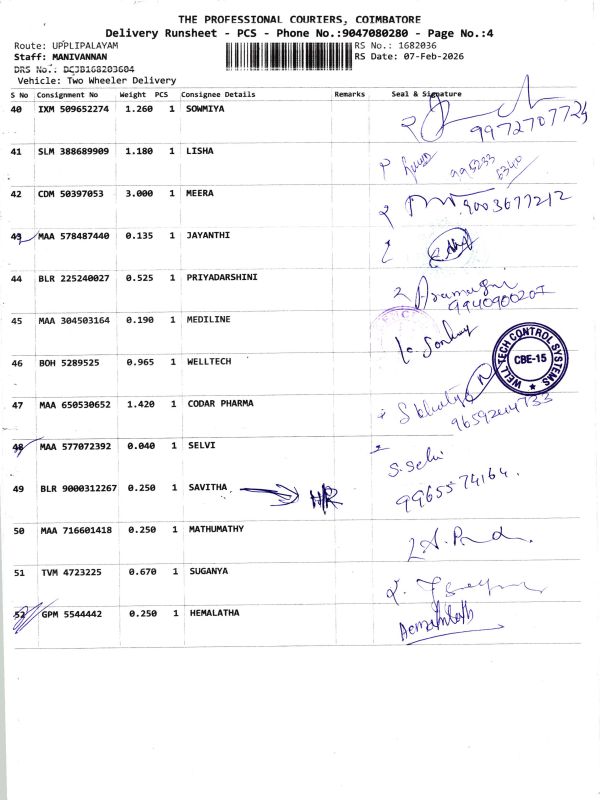 THE PROFESSIONAL COURIERS, COIMBATORE
Delivery Runsheet - PCS - Phone No.:9047080280 - Page No.:4
Route: UPPLIPALAYAM RS No.: 1682036
Staff: MANIVANNAN RS Date: 07-Feb-2026
DRS No.: DCJB168203604
Vehicle: Two Wheeler Delivery
S No Consignment No Weight PCS Consignee Details Remarks Seal & Signature
40 IXM 509652274 1.260 1 SOWMIYA
9972707724
41 SLM 388689909 1.180 1 LISHA
995233
6340
42 CDM 50397053 3.000 1 MEERA
9003677212
43 MAA 578487440 0.135 1 JAYANTHI
44 BLR 225240027 0.525 1 PRIYADARSHINI
9940900207
45 MAA 304503164 0.190 1 MEDILINE
46 BOH 5289525 0.965 1 WELLTECH
WELL TECH CONTROL SYSTEMS
CBE-15
47 MAA 650530652 1.420 1 CODAR PHARMA
9659244733
48 MAA 577072392 0.040 1 SELVI
S.Selvi
49 BLR 9000312267 0.250 1 SAVITHA H/R
9965574164.
50 MAA 716601418 0.250 1 MATHUMATHY
51 TVM 4723225 0.670 1 SUGANYA
52 GPM 5544442 0.250 1 HEMALATHA